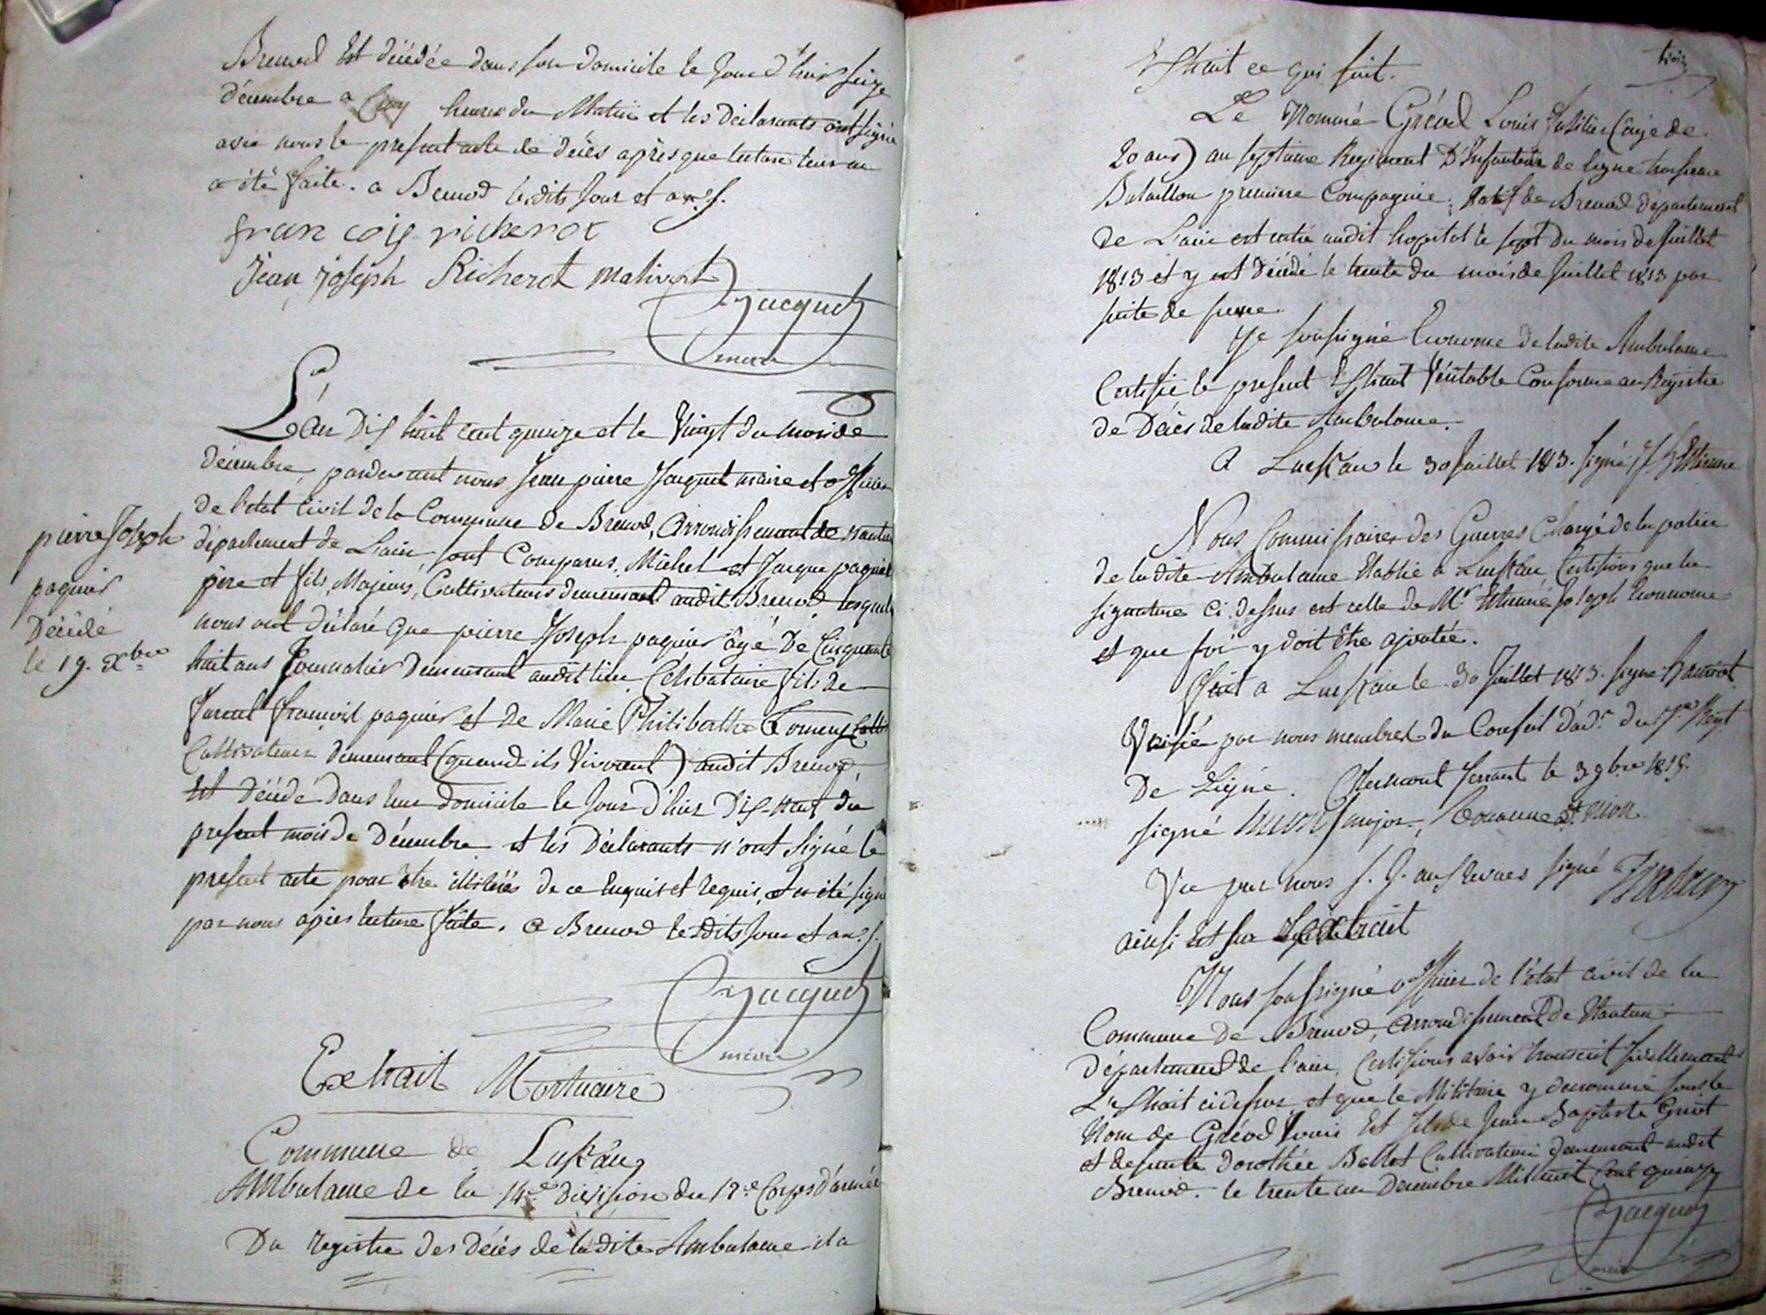 Brenod Est décédée dans son domicile le Jour d'hier seize
décembre a Cinq heures du Matin et les Déclarants ont signé
avec nous le present acte de décès après que lecture leur en
a été faite. a Brenod lesdits Jour et an.
francois richerot
Jean Joseph Richerot Malivert
Jacquet
maire
L'an Dix huit cent quinze et le Vingt du mois de
décembre, pardevant nous Jean pierre Jacquet maire et officier
de l'etat Civil de la Commune de Brenod, Arrondissement de nantua
département de L'ain, sont Comparus, Michel et Jacque paquier
père et fils, Majeurs, Cultivateurs demeurant audit Brenod lesquels
nous ont déclaré que pierre Joseph paquier âgé De Cinquante
huit ans Journalier Demeurant audit lieu Celibataire fils de
François paquier et de Marie Philiberthe
Cultivateurs demeurant (quand ils Vivoient) audit Brenod,
Est décédé Dans leur domicile le Jour d'hier Dix-neuf du
present mois de Décembre et les Déclarants n'ont Signé le
present acte pour être illitérés de ce Enquis et Requis, a été signé
par nous après lecture faite. a Brenod lesdits Jour et an.
Jacquet
maire
pierre Joseph
paquier
Décédé
le 19. Xbre
Extrait Mortuaire
Commune de Luckau
Ambulance de la 14e division du 12e Corps d'armée
Du registre des décès de ladite Ambulance a
Extrait ce qui suit.
Le Nommé Gréod Louis fusilier (âgé de
20 ans) au septieme Regiment D'Infanterie de Ligne troisieme
Bataillon premiere Compagnie, Natif de Brenod département
de L'ain est entré audit hopital le sept Du mois de Juillet
1813 et y est Décédé le trente du mois de Juillet 1813 par
suite de fievre.
Je soussigné Econome de ladite Ambulance
Certifie le present Extrait Véritable Conforme au Registre
de Décès de ladite Ambulance.
A Luckau le 30 Juillet 1813. Signé J. Etienne
Nous Commissaires des Guerres Chargé de la police
de ladite Ambulance Etablie a Luckau Certifions que la
signature ci dessus est celle de Mr Etienne Joseph Econome
et que foi y doit être ajoutée.
Fait a Luckau le 30 Juillet 1813. signé
Vérifié par nous membres du Conseil d'adon du 7me Regt
De Ligne. Clermont ferrant le 3 9bre 1815.
signé major,
Vu par nous S. J. aux Revues signé
ainsi Est sur L'extrait
Nous soussigné officier de l'état civil de la
Commune de Brenod, Arrondissement de Nantua
Département de l'ain, Certifions avoir transcrit fidellement
L'Extrait ci dessus et que le Militaire y denommé sous le
Nom de Gréod Louis Est fils de Jean Baptiste Griot
et defunte Dorothée Ballet Cultivateurs demeurant audit
Brenod. le trente un Décembre Mil huit Cent quinze
Jacquet
maire